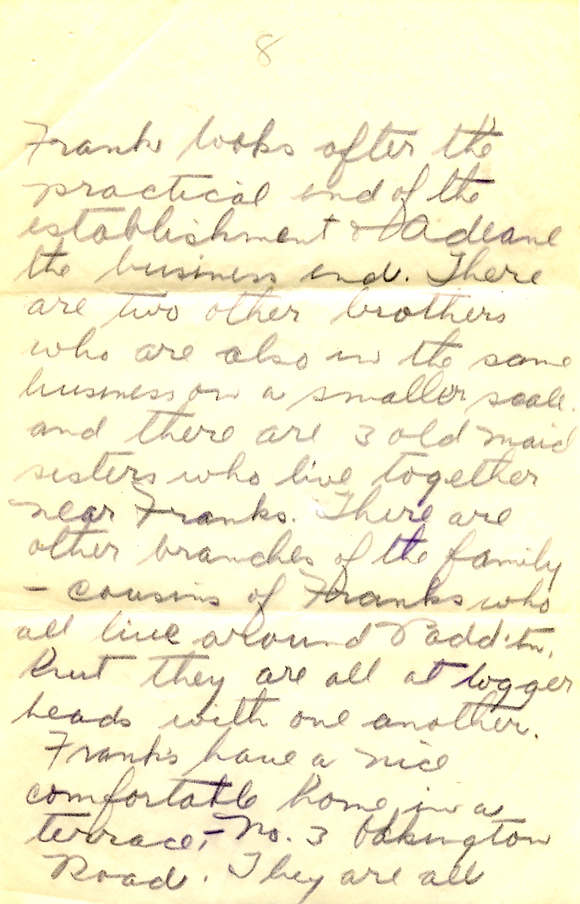 8
Frank looks after the
practical end of the
establishment &
the business end. There
are two other brothers
who are also in the same
business on a smaller scale.
and there are 3 old maid
sisters who live together
near Franks. There are
other branches of the family
- cousins of Franks who
all live around Padd'tn.
But they are all at logger
heads with one another.
Franks have a nice
comfortable home in a
terrace,- No. 3 Oakington
Road. They are all